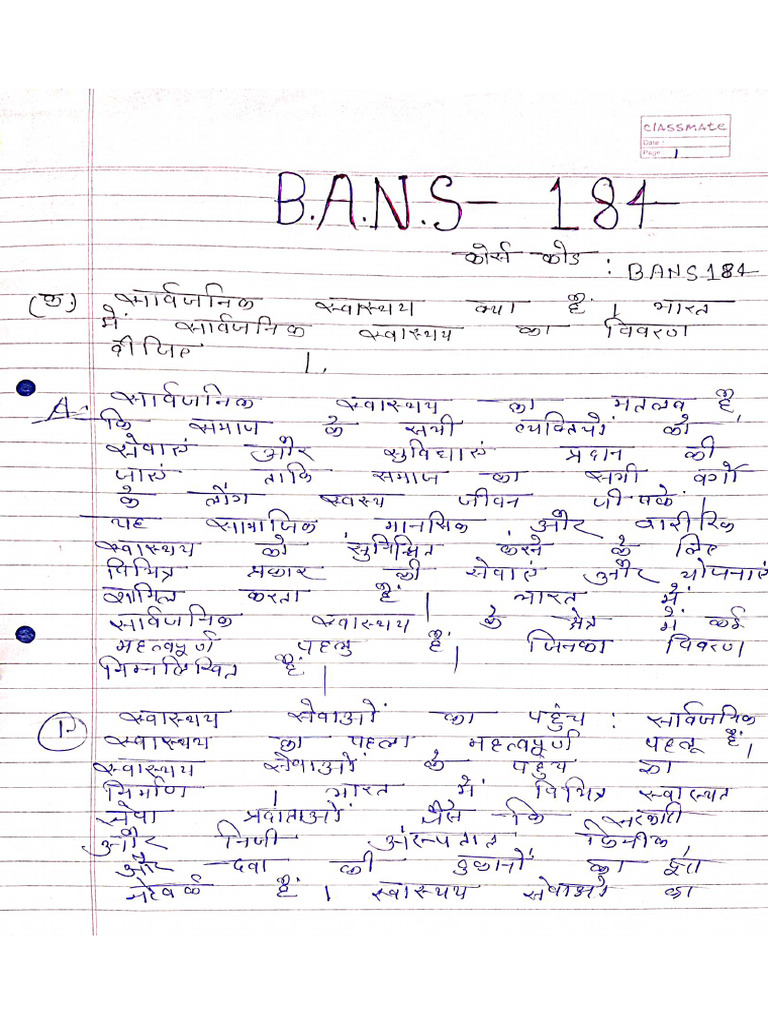 classmate
Date :
Page : 1
B.A.N.S - 184
कोर्स कोड : BANS184
(क) सार्वजनिक स्वास्थय क्या हैं। भारत
में सार्वजनिक स्वास्थय का विवरण
दीजिए ।.
A- सार्वजनिक स्वास्थय का मतलब है,
कि समाज के सभी व्यक्तियों को
सेवाएं और सुविधाएं प्रदान की
जाएं ताकि समाज का सभी वर्गो
के लौंग स्वस्थ जीवन जी सकें।
यह सामाजिक, मानसिक और शारीरिक
स्वास्थय को सुनिश्चित करने के लिए
विभिन्न प्रकार की सेवाएं और योजनाएं
शामिल करता हैं। भारत में
सार्वजनिक स्वास्थय के क्षेत्र में कई
महत्वपूर्ण पहलु हैं, जिनका विवरण
निम्नलिखित हैं।
1- स्वास्थय सेवाओं का पहुंच : सार्वजनिक
स्वास्थय का पहला महत्वपूर्ण पहलू हैं।
स्वास्थय सेवाओं के पहुंच का
निर्माण । भारत में विभिन्न स्वास्थत
सेवा प्रदाताओं जैसे कि सरकारी
और निजी अस्पताल क्लिनीक,
और दवा की दुकानों का
नेटवर्क हैं। स्वास्थय सेवाओ का